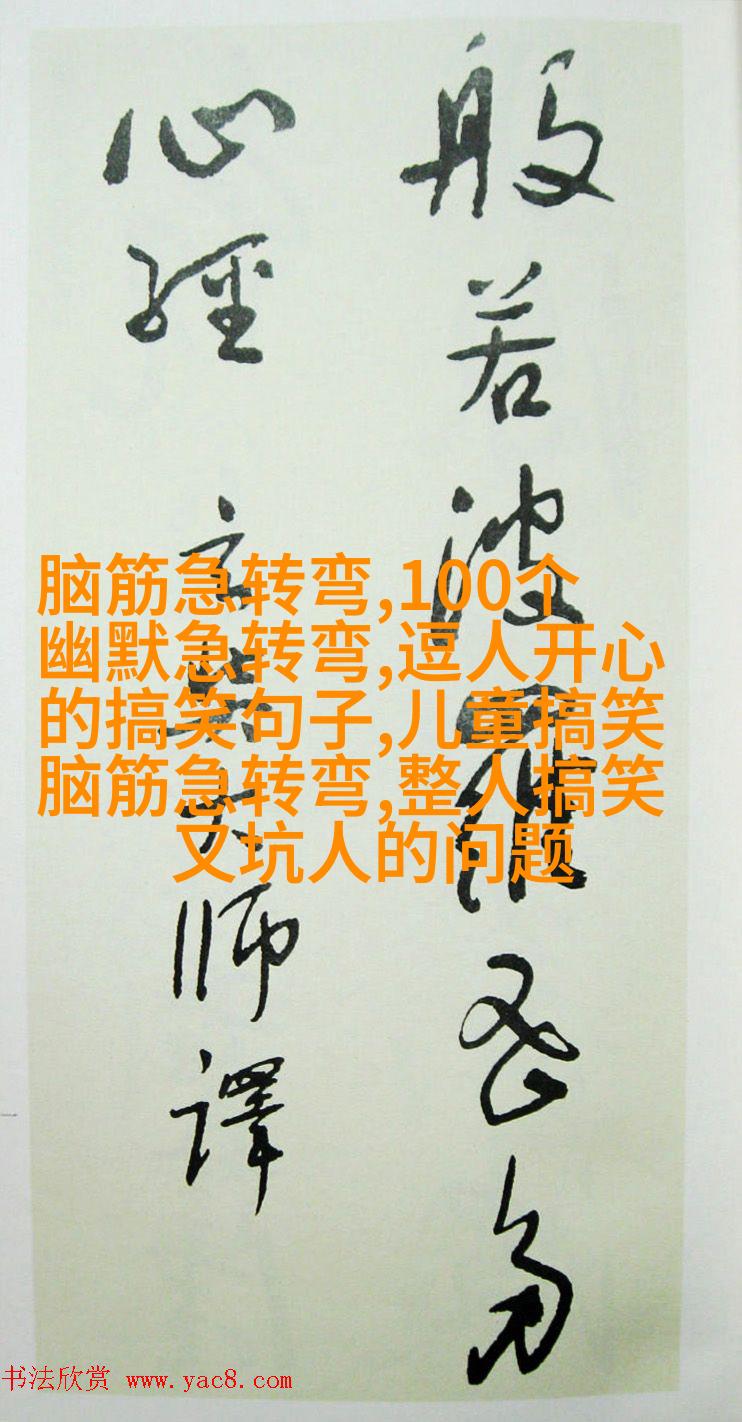 般若波羅蜜多
心經 玄奘大師譯
脑筋急转弯,100个
幽默急转弯,逗人开心
的搞笑句子,儿童搞笑
脑筋急转弯,整人搞笑
又坑人的问题
书法欣赏 www.yac8.com